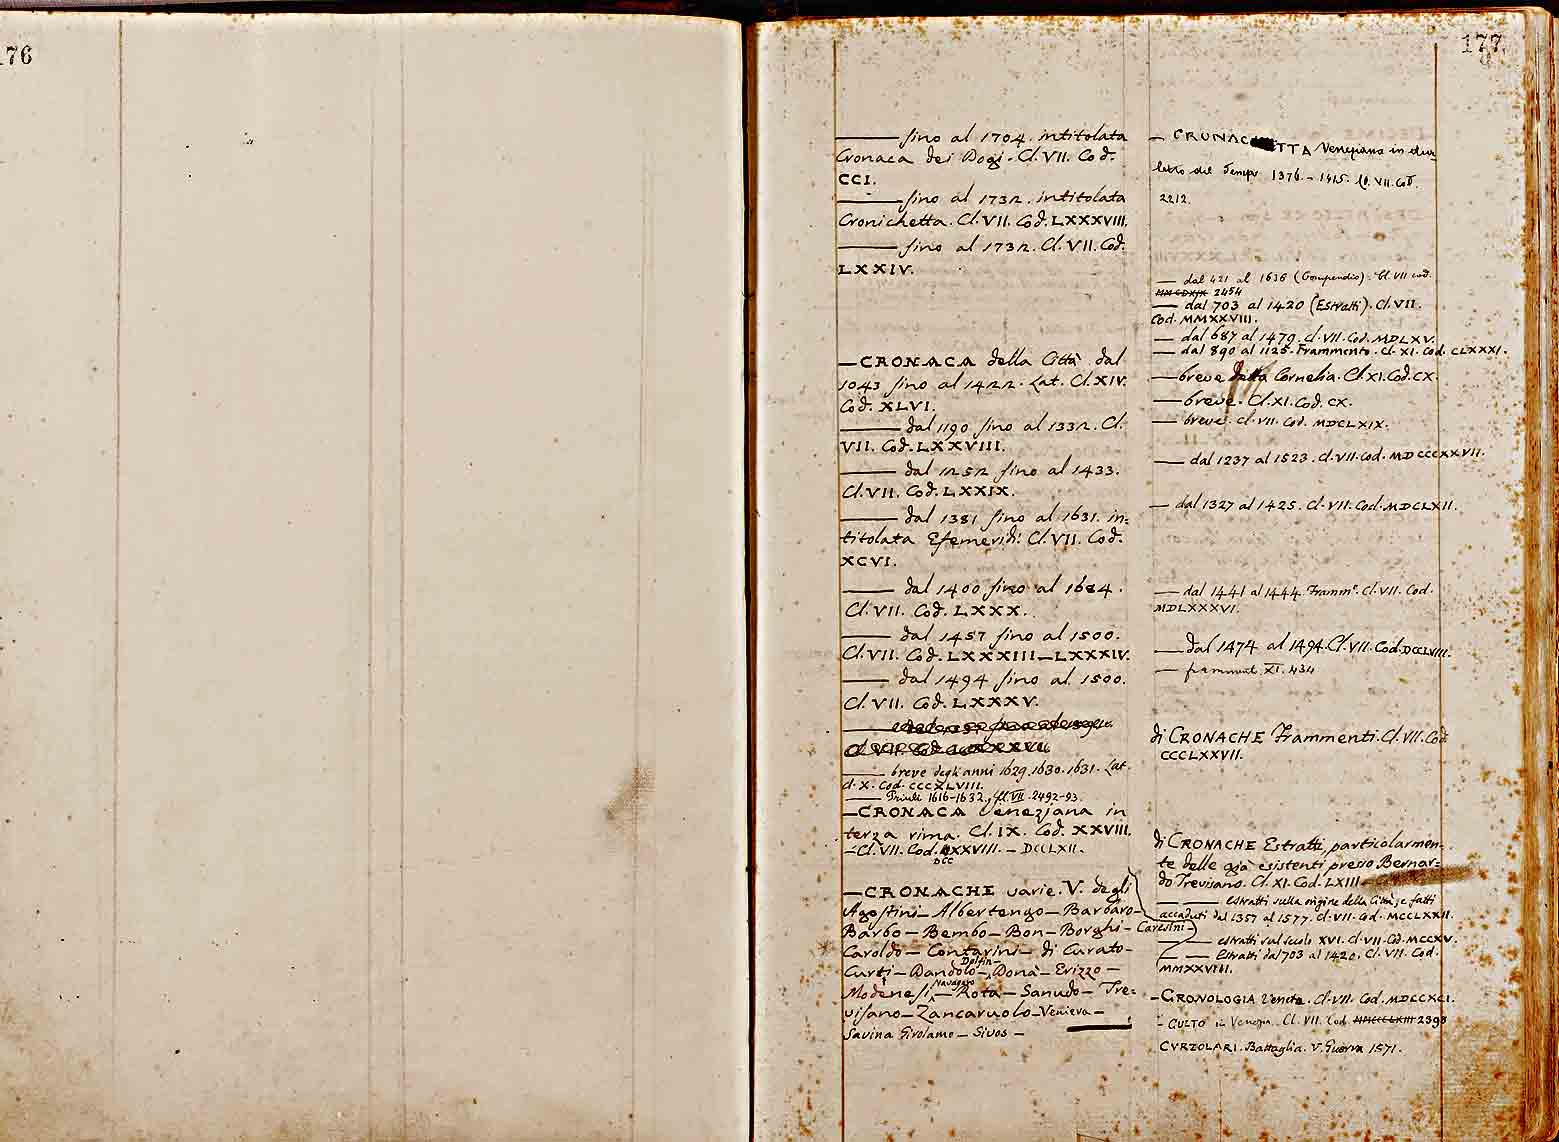 176
177
——— fino al 1704. intitolata
Cronaca dei Dogi. Cl. VII. Cod.
CCI.
——— fino al 1732. intitolata
Cronichetta. Cl. VII. Cod. LXXXVIII.
——— fino al 1732. Cl. VII. Cod.
LXXIV.
— CRONACA della Città dal
1043 fino al 1422. Lat. Cl. XIV.
Cod. XLVI.
——— dal 1190 fino al 1332. Cl.
VII. Cod. LXXVIII.
——— dal 1252 fino al 1433.
Cl. VII. Cod. LXXIX.
——— dal 1381 fino al 1631. in=
titolata Efemeridi: Cl. VII. Cod.
XCVI.
——— dal 1400 fino al 1684.
Cl. VII. Cod. LXXX.
——— dal 1457 fino al 1500.
Cl. VII. Cod. LXXXIII—LXXXIV.
——— dal 1494 fino al 1500.
Cl. VII. Cod. LXXXV.
——— breve degli anni 1629. 1630. 1631. Lat.
cl. X. Cod. CCCXLVIII.
——— Priuli 1616-1632, Cl. VII. 2492-93.
— CRONACA Veneziana in
terza rima. Cl. IX. Cod. XXVIII.
— Cl. VII. Cod. XXVIII. — DCCLXII.
DCC
— CRONACHE varie. V. degli
Agostini — Albertengo — Barbaro —
Barbo — Bembo — Bon — Borghi — Caresini —
Caroldo — Contarini — di Curato —
Dolfin —
Curti — Dandolo —, Donà — Erizzo —
Navagero
Modenesi, — Rota — Sanudo — Tre=
visano — Zancaruolo — Veniera —
Savina Girolamo — Sivos —
— CRONACHETTA Veneziana in dia=
letto del Tempo 1376. – 1415. Cl. VII. Cod.
2212.
— dal 421 al 1636 (Compendio). Cl. VII cod.
2454
— dal 703 al 1420 (Estratti). Cl. VII.
Cod. MMXXVIII.
— dal 687 al 1479. cl. VII. Cod. MDLXV.
— dal 890 al 1125. Frammento. Cl. XI. Cod. CLXXXI.
— breve della Cornelia. Cl. XI. Cod. CX.
— breve. Cl. XI. Cod. CX.
— breve. Cl. VII. Cod. MDCLXIX.
— dal 1237 al 1523. Cl. VII. Cod. MDCCCXXVII.
— dal 1327 al 1425. Cl. VII. Cod. MDCLXII.
— dal 1441 al 1444. Framm.º. Cl. VII. Cod.
MDLXXXVI.
— dal 1474 al 1494. Cl. VII. Cod. DCCLVIII.
— framment. XI. 434
di CRONACHE Frammenti. Cl. VII. Cod.
CCCLXXVII.
di CRONACHE Estratti, particolarmen=
te delle già esistenti presso Bernar=
do Trevisano. Cl. XI. Cod. LXIII
— — estratti sulla origine della Città, e fatti
accaduti dal 1357 al 1577. Cl. VII. Cod. MCCLXXII.
— — estratti sul secolo XVI. Cl. VII. Cod. MCCXV.
— — Estratti dal 703 al 1420. Cl. VII. Cod.
MMXXVIII.
— CRONOLOGIA Veneta. Cl. VII. Cod. MDCCXCI.
- CULTO in Venezia. Cl. VII. Cod. MMCCCLXIII 2398
CVRZOLARI. Battaglia. V. Guerra 1571.